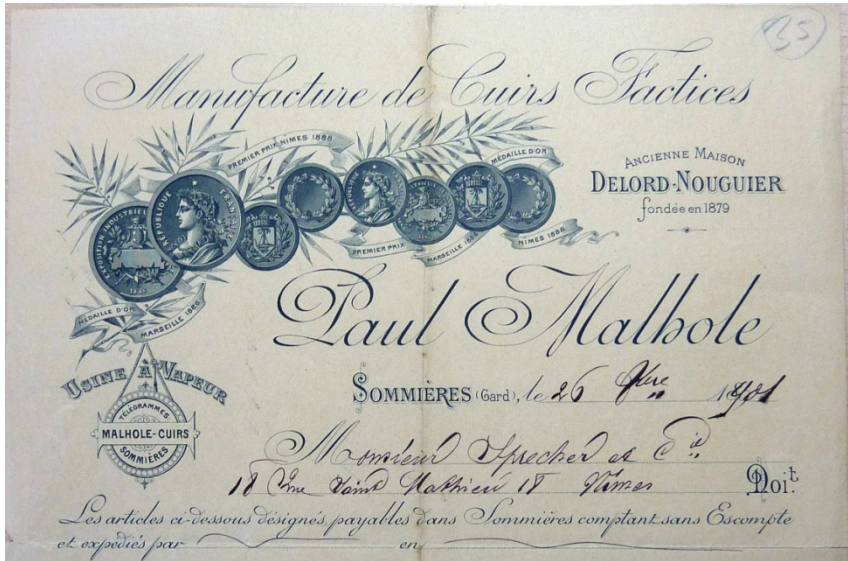 35
Manufacture de Cuirs Factices
PREMIER PRIX NIMES 1888
MÉDAILLE D'OR
ANCIENNE MAISON
DELORD-NOUGUIER
fondée en 1879
EXPOSITION INDUSTRIELLE
RÉPUBLIQUE FRANÇAISE
PREMIER PRIX
MARSEILLE
NIMES 1888
MÉDAILLE D'OR
MARSEILLE 1886
Paul Malhole
USINE À VAPEUR
TÉLÉGRAMMES
MALHOLE-CUIRS
SOMMIÈRES
SOMMIÈRES (Gard), le 26 1901
Monsieur Sprecher et Cie
18 Rue Saint Mathieu 18 Nimes Doit.
Les articles ci-dessous désignés, payables dans Sommières comptant sans Escompte
et expédiés par en